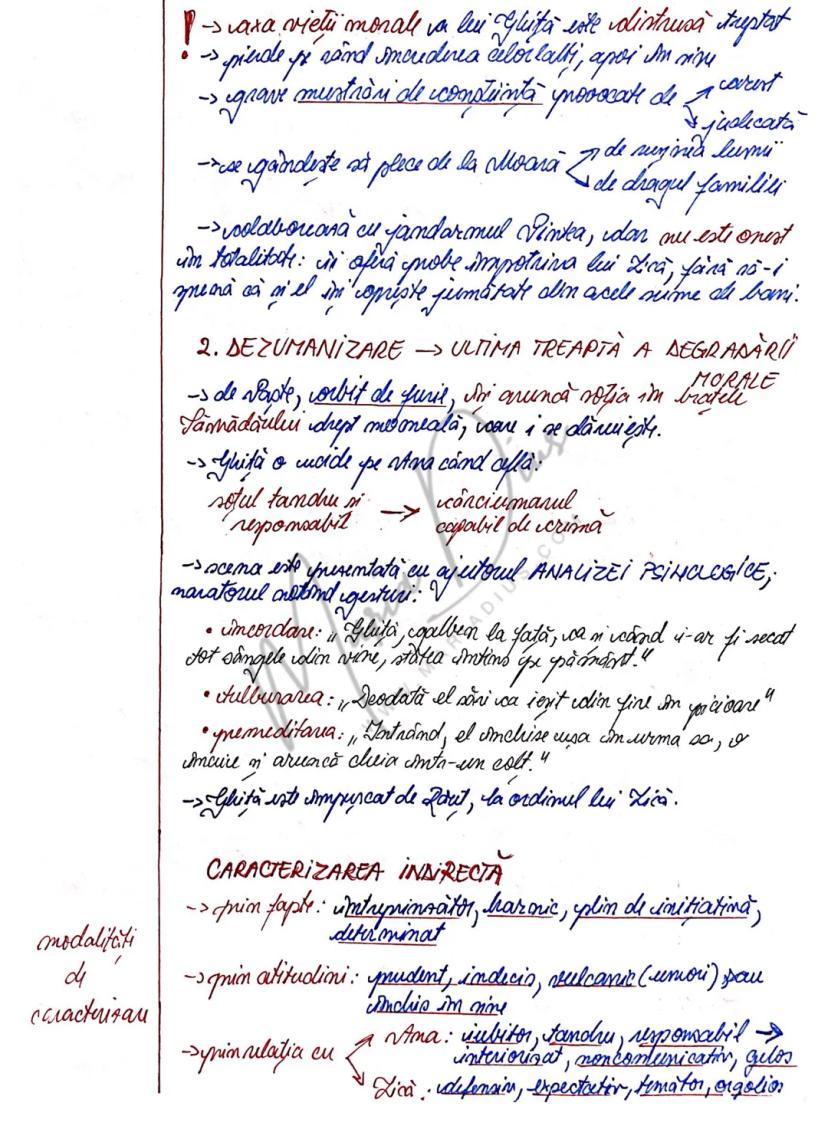 ! → axa vieții morale a lui Ghiță este distrusă treptat
→ pierde pe rând încrederea celorlalți, apoi în sine
→ grave mustrări de conștiință provocate de → arest
→ judecată
→ se gândește să plece de la Moară → de rușinea lumii
→ de dragul familiei
→ colaborează cu jandarmul Pintea, dar nu este onest
în totalitate: îi oferă probe împotriva lui Lică, fără să-i
spună că și el își oprește jumătate din acele sume de bani.
2. DEZUMANIZARE → ULTIMA TREAPTĂ A DEGRADĂRII
MORALE
→ de Paște, orbit de furie, își aruncă soția în brațele
Sămădăului drept momeală, care i se dăruiește.
→ Ghiță o ucide pe Ana când află:
soțul tandru și → cârciumarul
responsabil capabil de crimă
→ scena este prezentată cu ajutorul ANALIZEI PSIHOLOGICE,
naratorul notând gesturi:
• încordare: „Ghiță, galben la față, ca și când i-ar fi secat
tot sângele din vine, stătea întins pe pământ."
• tulburarea: „Deodată el sări ca ieșit din fire în picioare"
• premeditarea: „Intrând, el închise ușa în urma sa, o
încuie și aruncă cheia într-un colț."
→ Ghiță este împușcat de Răuț, la ordinul lui Lică.
CARACTERIZAREA INDIRECTĂ
→ prin fapte: întreprinzător, harnic, plin de inițiativă,
determinat
modalități
de
caracterizare
→ prin atitudini: prudent, indecis, vulcanic (umori) sau
închis în sine
→ prin relația cu → Ana: iubitor, tandru, responsabil →
interiorizat, noncomunicativ, gelos
→ Lică: defensiv, expectativ, temător, orgolios
Maria Dius
WWW.MARIADIUS.CO